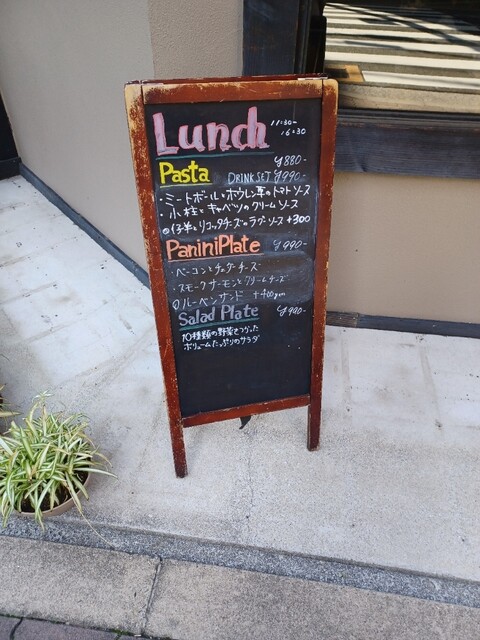 Lunch 11:30~16:30
Pasta ¥880-
DRINK SET ¥990-
・ミートボールとホウレン草のトマトソース
・小柱とキャベツのクリームソース
◎仔羊とリコッタチーズのラグーソース +300
Panini Plate ¥990-
・ベーコンとチェダーチーズ
・スモークサーモンとクリームチーズ
◎ルーベンサンド +400yen
Salad Plate ¥990-
10種類の野菜をつかった
ボリュームたっぷりのサラダ